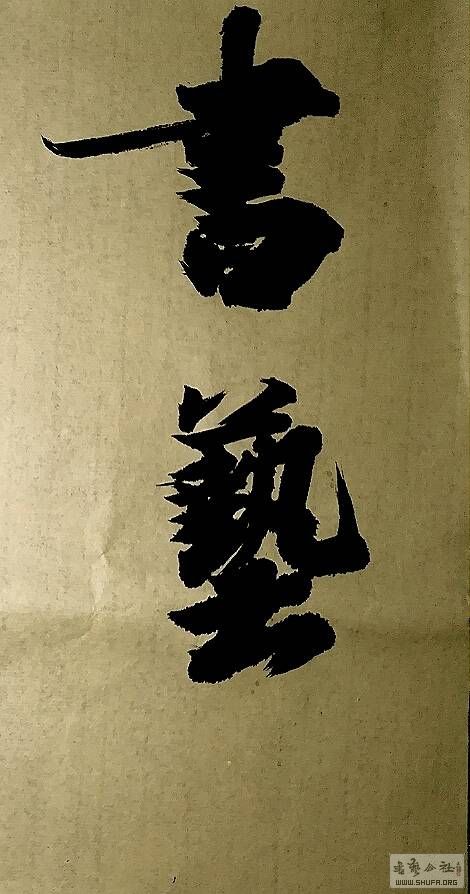 書藝
书艺公社
WWW.SHUFA.ORG